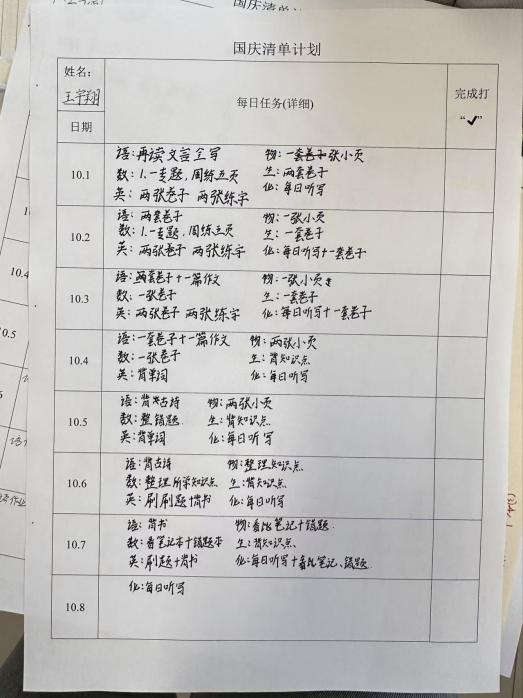 国庆清单计划
姓名：
王宇翔
日期
每日任务(详细)
完成打
“✓”
10.1
语：再读文言全写 物：一张小页
数：1.一专题，周练五页 生：两套卷子
英：两张卷子 两张练字 化：每日听写
10.2
语：两套卷子 物：一张小页
数：1.一专题，周练三页 生：一套卷子
英：两张卷子 两张练字 化：每日听写+一套卷子
10.3
语：两套卷子+一篇作文 物：一张小页
数：一张卷子 生：一套卷子
英：两张卷子 两张练字 化：每日听写+一套卷子
10.4
语：一套卷子+一篇作文 物：两张小页
数：一张卷子 生：背知识点
英：背单词 化：每日听写
10.5
语：背古诗 物：两张小页
数：整错题 生：背知识点
英：背单词 化：每日听写
10.6
语：背古诗 物：整理知识点
数：整理所学知识点 生：背知识点
英：刷刷题+背书 化：每日听写
10.7
语：背书 物：看笔记+错题
数：看笔记本+错题本 生：背知识点
英：刷题+背书 化：每日听写+看笔记、错题
10.8
化：每日听写
10.4
0.5